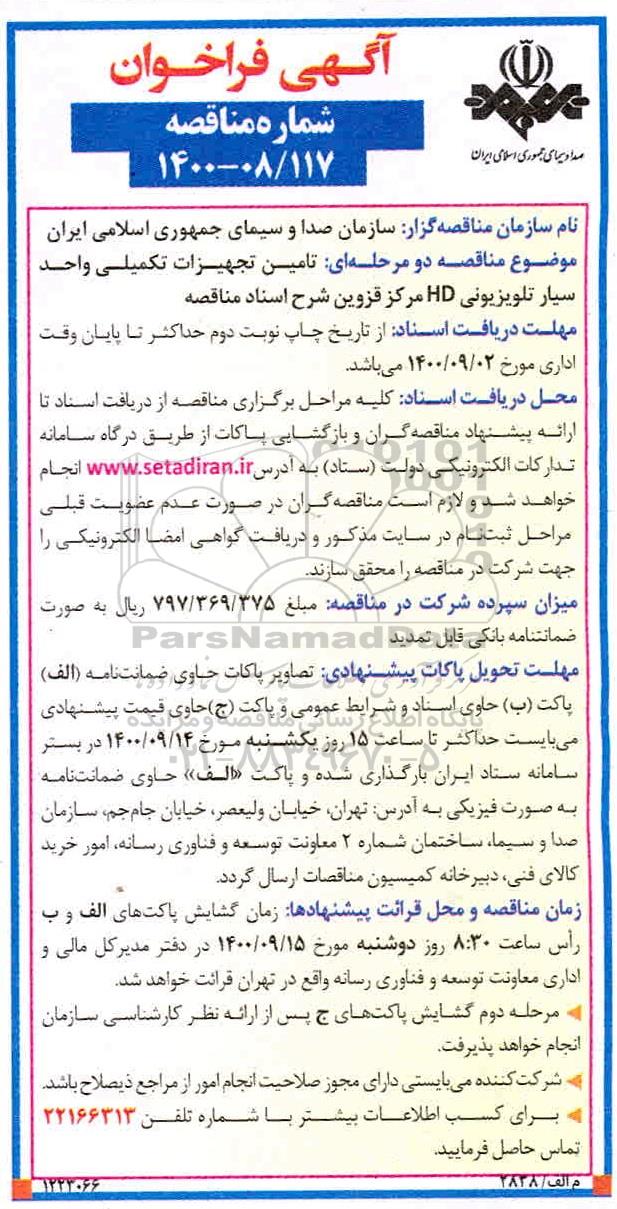 آگهی فراخوان
شماره مناقصه
۱۴۰۰-۰۸/۱۱۷
صدا و سیمای جمهوری اسلامی ایران
نام سازمان مناقصه‌گزار: سازمان صدا و سیمای جمهوری اسلامی ایران
موضوع مناقصه دو مرحله‌ای: تامین تجهیزات تکمیلی واحد
سیار تلویزیونی HD مرکز قزوین شرح اسناد مناقصه
مهلت دریافت اسناد: از تاریخ چاپ نوبت دوم حداکثر تا پایان وقت
اداری مورخ ۱۴۰۰/۰۹/۰۲ می‌باشد.
محل دریافت اسناد: کلیه مراحل برگزاری مناقصه از دریافت اسناد تا
ارائه پیشنهاد مناقصه‌گران و بازگشایی پاکات از طریق درگاه سامانه
تدارکات الکترونیکی دولت (ستاد) به آدرس www.setadiran.ir انجام
خواهد شد و لازم است مناقصه‌گران در صورت عدم عضویت قبلی
مراحل ثبت‌نام در سایت مذکور و دریافت گواهی امضا الکترونیکی را
جهت شرکت در مناقصه را محقق سازند.
میزان سپرده شرکت در مناقصه: مبلغ ۷۹۷/۳۶۹/۳۷۵ ریال به صورت
ضمانتنامه بانکی قابل تمدید
ParsNamadData
مهلت تحویل پاکات پیشنهادی: تصاویر پاکات حاوی ضمانت‌نامه (الف)
پاکت (ب) حاوی اسناد و شرایط عمومی و پاکت (ج) حاوی قیمت پیشنهادی
پایگاه اطلاع رسانی مناقصه و مزایده
می‌بایست حداکثر تا ساعت ۱۵ روز یکشنبه مورخ ۱۴۰۰/۰۹/۱۴ در بستر
۰۲۱-۸۸۳۴۹۶۷۰-۵
سامانه ستاد ایران بارگذاری شده و پاکت «الف» حاوی ضمانت‌نامه
به صورت فیزیکی به آدرس: تهران، خیابان ولیعصر، خیابان جام‌جم، سازمان
صدا و سیما، ساختمان شماره ۲ معاونت توسعه و فناوری رسانه، امور خرید
کالای فنی، دبیرخانه کمیسیون مناقصات ارسال گردد.
زمان مناقصه و محل قرائت پیشنهادها: زمان گشایش پاکت‌های الف و ب
رأس ساعت ۸:۳۰ روز دوشنبه مورخ ۱۴۰۰/۰۹/۱۵ در دفتر مدیرکل مالی و
اداری معاونت توسعه و فناوری رسانه واقع در تهران قرائت خواهد شد.
مرحله دوم گشایش پاکت‌های ج پس از ارائه نظر کارشناسی سازمان
انجام خواهد پذیرفت.
شرکت‌کننده می‌بایستی دارای مجوز صلاحیت انجام امور از مراجع ذیصلاح باشد.
برای کسب اطلاعات بیشتر با شماره تلفن ۲۲۱۶۶۳۱۳
تماس حاصل فرمایید.
م الف/ ۲۸۳۸
۱۲۲۳۰۶۶